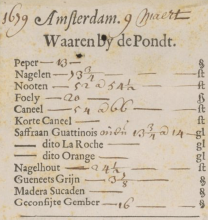 1679 Amsterdam. 9 Maert
Waaren by de Pondt.
Peper — 13 — ß
Nagelen — 73 3/4 — st
Nooten — 52 a 54 1/2 — st
Foely — 20 — ß
Caneel — 54 a 66 — st
Korte Caneel — st
Saffraan Guattinois 13 3/4 a 14 — gl
— dito La Roche — gl
— dito Orange — gl
Nagelhout — 24 1/2 — st
Gueneets Grijn — 13 — ß
Madera Sucaden — ß
Geconfijte Gember — 16 — ß